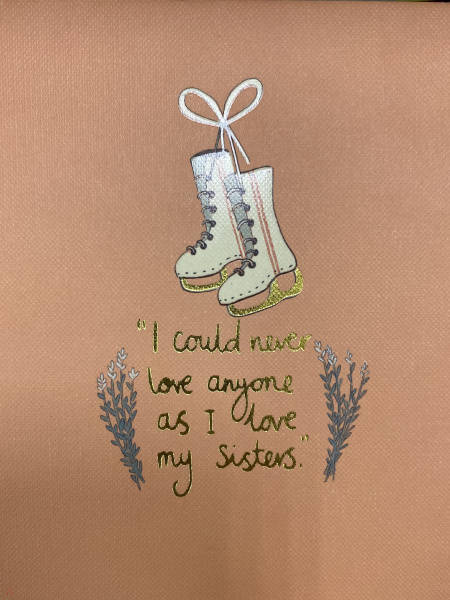 "I could never
love anyone
as I love
my sisters."